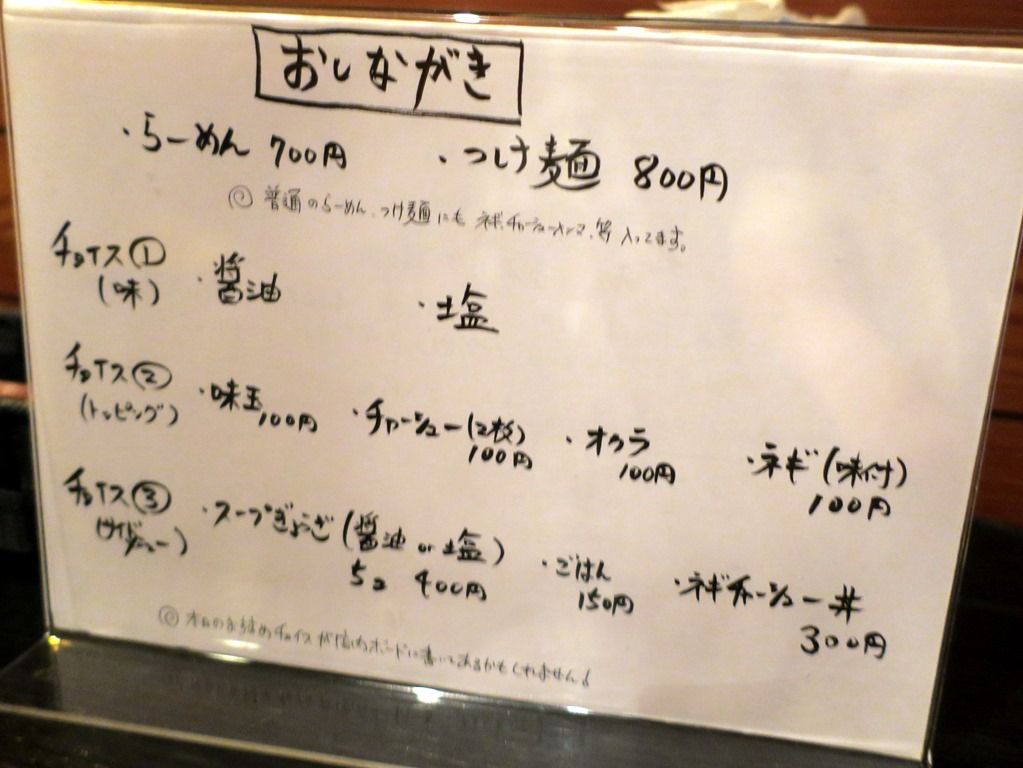 おしながき
・らーめん 700円 ・つけ麺 800円
◎ 普通のらーめん、つけ麺にも ネギ、チャーシュー、メンマ、等 入ってます。
チョイス① ・醤油 ・塩
(味)
チョイス② ・味玉 100円 ・チャーシュー(2枚) 100円 ・オクラ 100円 ・ネギ(味付) 100円
(トッピング)
チョイス③ ・スープぎょうざ(醤油 or 塩) 5コ 400円 ・ごはん 150円 ・ネギチャーシュー丼 300円
(サイドメニュー)
◎ 本日のお録めチョイスが店内ボードに書いてあるかもしれません!